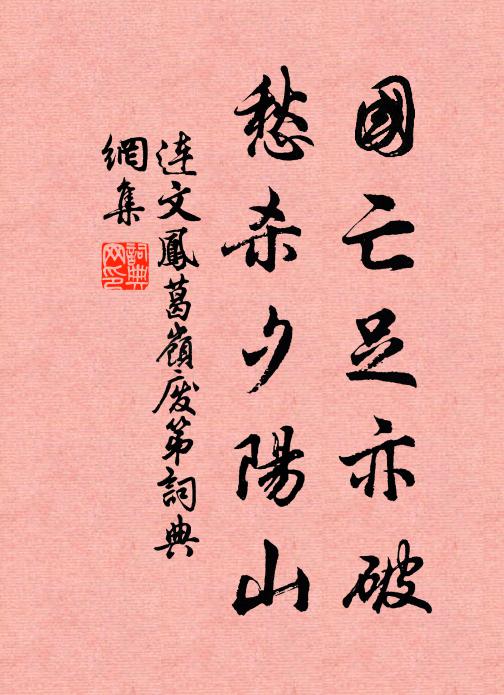 國亡足亦破
愁杀夕陽山
連文鳳葛嶺废第詞典
網集
詞典
网印